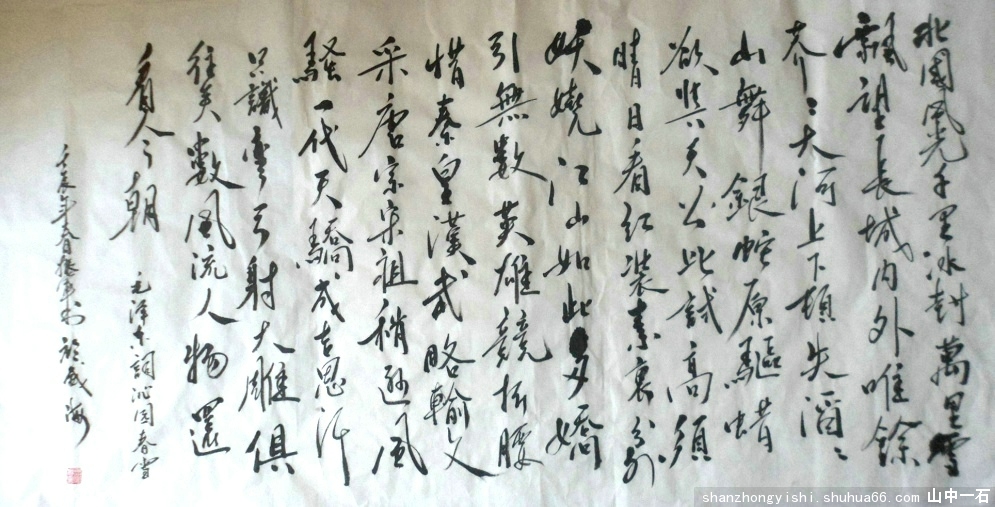 北國風光千里冰封萬里雪
飄望長城内外唯餘
莽〻大河上下頓失滔〻
山舞銀蛇原驅蜡
欲與天公比試高須
晴日看紅裝素裹分外
妖嬈江山如此多嬌
引無數英雄競折腰
惜秦皇漢武略輸文
采唐宗宋祖稍遜風
騷一代天驕成吉思汗
只識彎弓射大雕俱
往矣數風流人物還
看今朝
毛澤東詞沁園春雪
壬辰年春書於威海
shanzhongyishi.shuhua66.com 山中一石